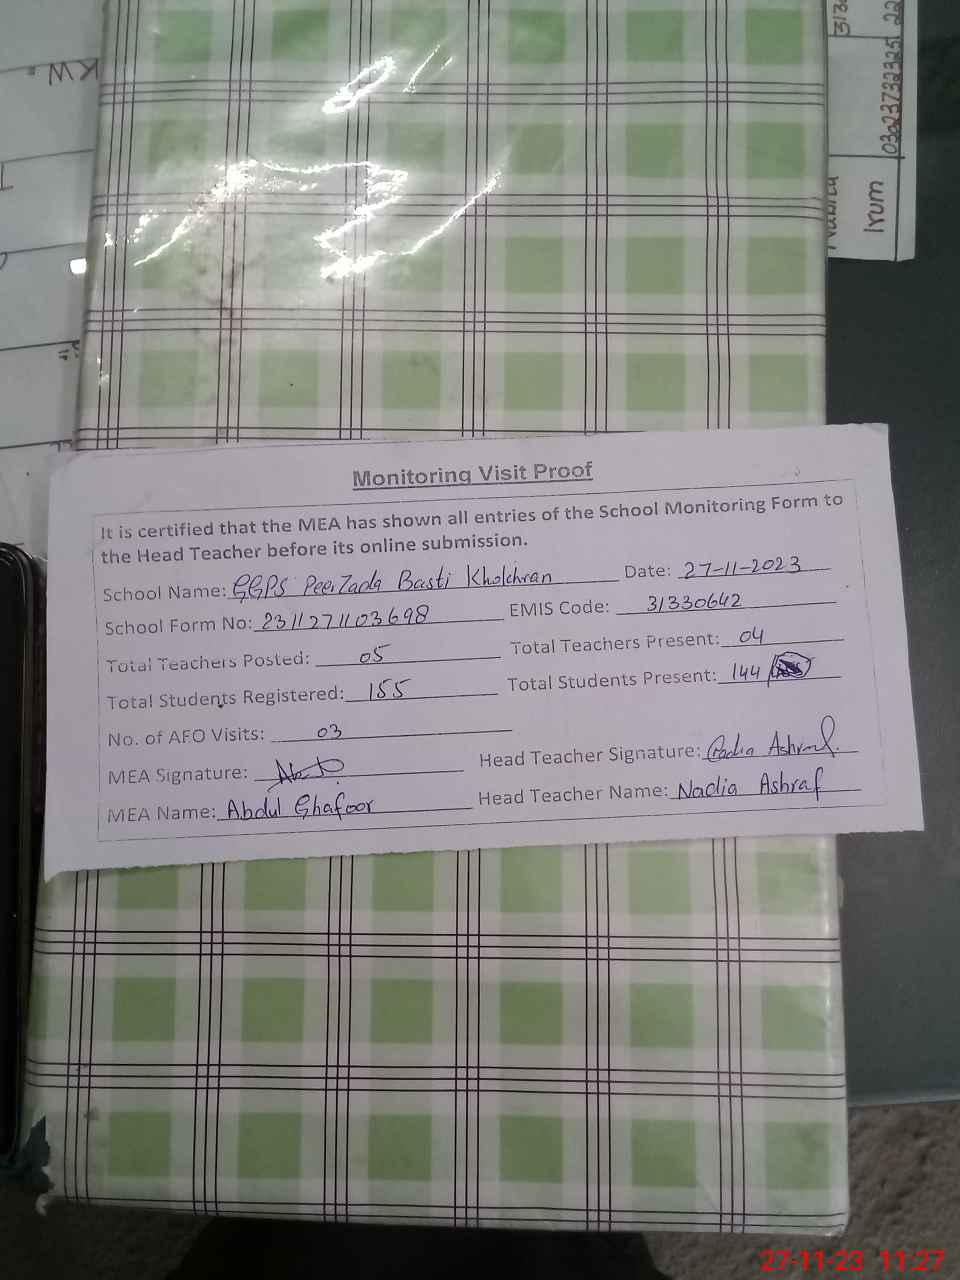 KW.
313
22
03023732325
Nabila
Irum
Monitoring Visit Proof
It is certified that the MEA has shown all entries of the School Monitoring Form to
the Head Teacher before its online submission.
School Name: GGPS PeerZada Basti Kholchran Date: 27-11-2023
School Form No: 2311271103698 EMIS Code: 31330642
Total Teachers Posted: 05 Total Teachers Present: 04
Total Students Registered: 155 Total Students Present: 144
No. of AFO Visits: 03
MEA Signature: Head Teacher Signature: Nadia Ashraf
MEA Name: Abdul Ghafoor Head Teacher Name: Nadia Ashraf
27-11-23 11:27